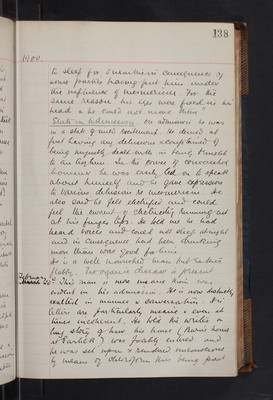 138
1900.
to sleep for 3 weeks in consequence of
some parties having put him under
the influence of mesmerism. For the
same reason his eyes were fixed in his
head & he could not move them"
State on Admission On admission he was
in a state of mild excitement. He denied at
first having any delusions & complained of
being unjustly dealt with in being brought
to an Asylum. In the course of conversation
however he was easily led on to speak
about himself and he gave expression
to various delusions re mesmerism. He
also said he felt electrified and could
feel the current of electricity running out
at his finger tips. He told me he had
heard voices and could not sleep at night
and in consequence had been drinking
more than was good for him.
He is a well nourished man but rather
flabby. No organic disease is present
February This man is now more than was
evident on his admission. He is now distinctly
exalted in manner & conversation. His
letters are particularly insane & even at
times incoherent. He told his wife a
long story of how his house (
at Parkhill) was forcibly entered and
he was set upon & rendered unconscious
by means of chloroform thus being part